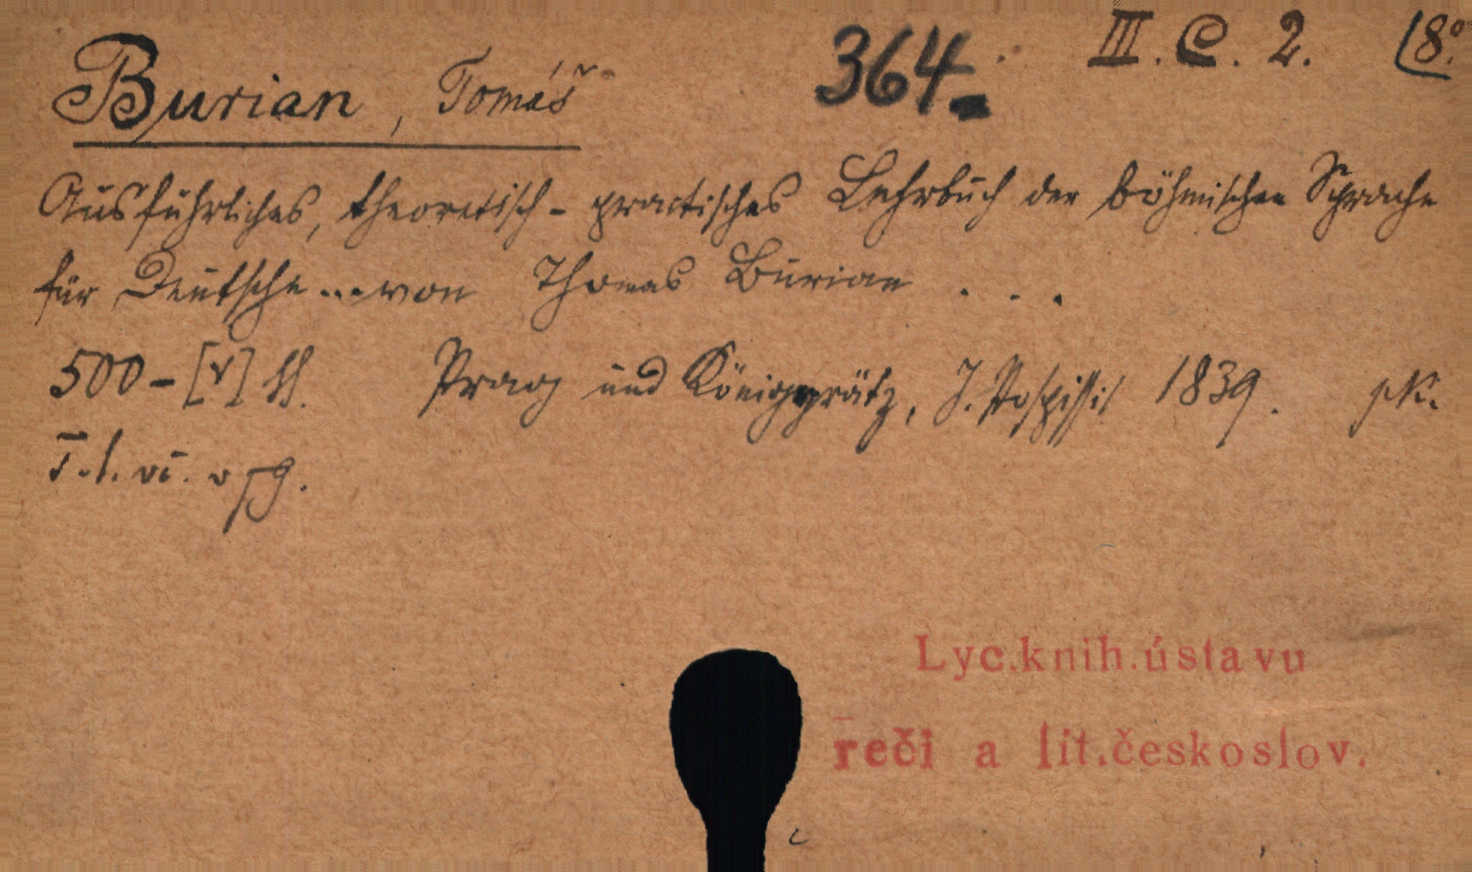 Burian, Tomáš 364. III. C. 2. 8°.
Ausführliches, theoretisch-practisches Lehrbuch der böhmischen Sprache
für Deutsche ... von Thomas Burian . . .
500-[V] SS. Prag und Königgrätz, J. Pospissil 1839. pk.
T. l. vč.
Lyc.knih.ústavu
řeči a lit.českoslov.